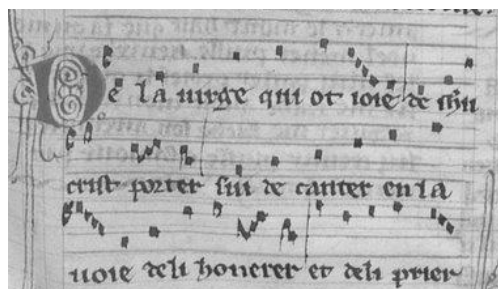 De la uirge qui ot ioie de ihu
crist porter sui de canter en la
uoie deli honerer et deli prier